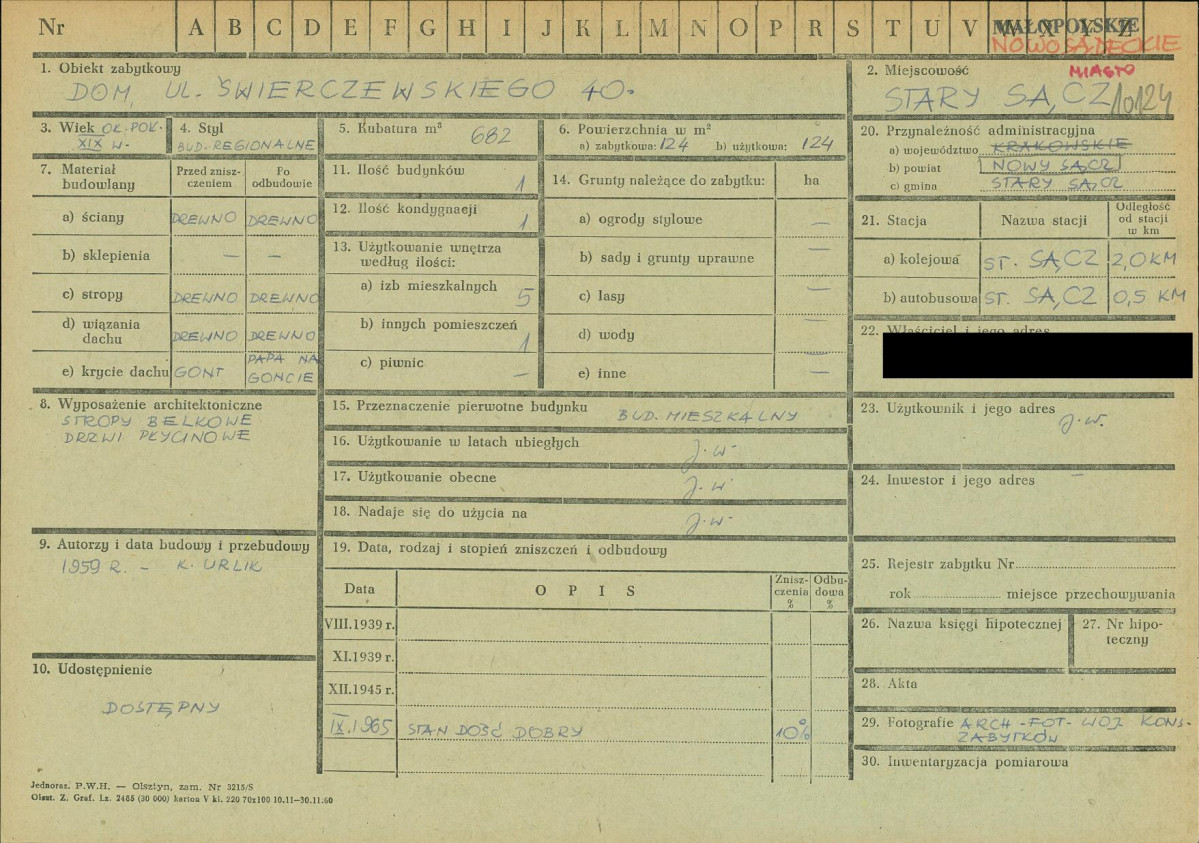 Nr A B C D E F G H I J K L M N O P R S T U V W X Y Z
MAŁOPOLSKIE
NOWOSĄDECKIE
1. Obiekt zabytkowy
DOM, UL. ŚWIERCZEWSKIEGO 40.
2. Miejscowość
MIASTO
STARY SĄCZ 10124
3. Wiek OK. POŁ.
XIX W.
4. Styl
BUD. REGIONALNE
5. Kubatura m³ 682
6. Powierzchnia w m²
a) zabytkowa: 124 b) użytkowa: 124
7. Materiał budowlany
Przed zniszczeniem
Po odbudowie
a) ściany DREWNO DREWNO
b) sklepienia — —
c) stropy DREWNO DREWNO
d) wiązania dachu DREWNO DREWNO
e) krycie dachu GONT PAPA NA GONCIE
8. Wyposażenie architektoniczne
STROPY BELKOWE
DRZWI PŁYCINOWE
9. Autorzy i data budowy i przebudowy
1959 R. - K. URLIK
10. Udostępnienie
DOSTĘPNY
11. Ilość budynków 1
12. Ilość kondygnacji 1
13. Użytkowanie wnętrza według ilości:
a) izb mieszkalnych 5
b) innych pomieszczeń 1
c) piwnic —
14. Grunty należące do zabytku: ha
a) ogrody stylowe —
b) sady i grunty uprawne —
c) lasy —
d) wody —
e) inne —
15. Przeznaczenie pierwotne budynku BUD. MIESZKALNY
16. Użytkowanie w latach ubiegłych J.w.
17. Użytkowanie obecne J.w.
18. Nadaje się do użycia na J.w.
19. Data, rodzaj i stopień zniszczeń i odbudowy
Data OPIS Zniszczenia % Odbudowa %
VIII.1939 r.
XI.1939 r.
XII.1945 r.
IX.1965 STAN DOŚĆ DOBRY 10%
20. Przynależność administracyjna
a) województwo KRAKOWSKIE
b) powiat NOWY SĄCZ
c) gmina STARY SĄCZ
21. Stacja Nazwa stacji Odległość od stacji w km
a) kolejowa ST. SĄCZ 2,0 KM
b) autobusowa ST. SĄCZ 0,5 KM
22. Właściciel i jego adres
23. Użytkownik i jego adres
J.w.
24. Inwestor i jego adres —
25. Rejestr zabytku Nr
rok miejsce przechowywania
26. Nazwa księgi hipotecznej
27. Nr hipoteczny
28. Akta
29. Fotografie ARCH-FOT-WOJ. KONS. ZABYTKÓW
30. Inwentaryzacja pomiarowa
Jednoraz. P.W.H. — Olsztyn, zam. Nr 3215/S
Olszt. Z. Graf. Lz. 2485 (30 000) karton V kl. 220 70x100 10.11—30.11.60